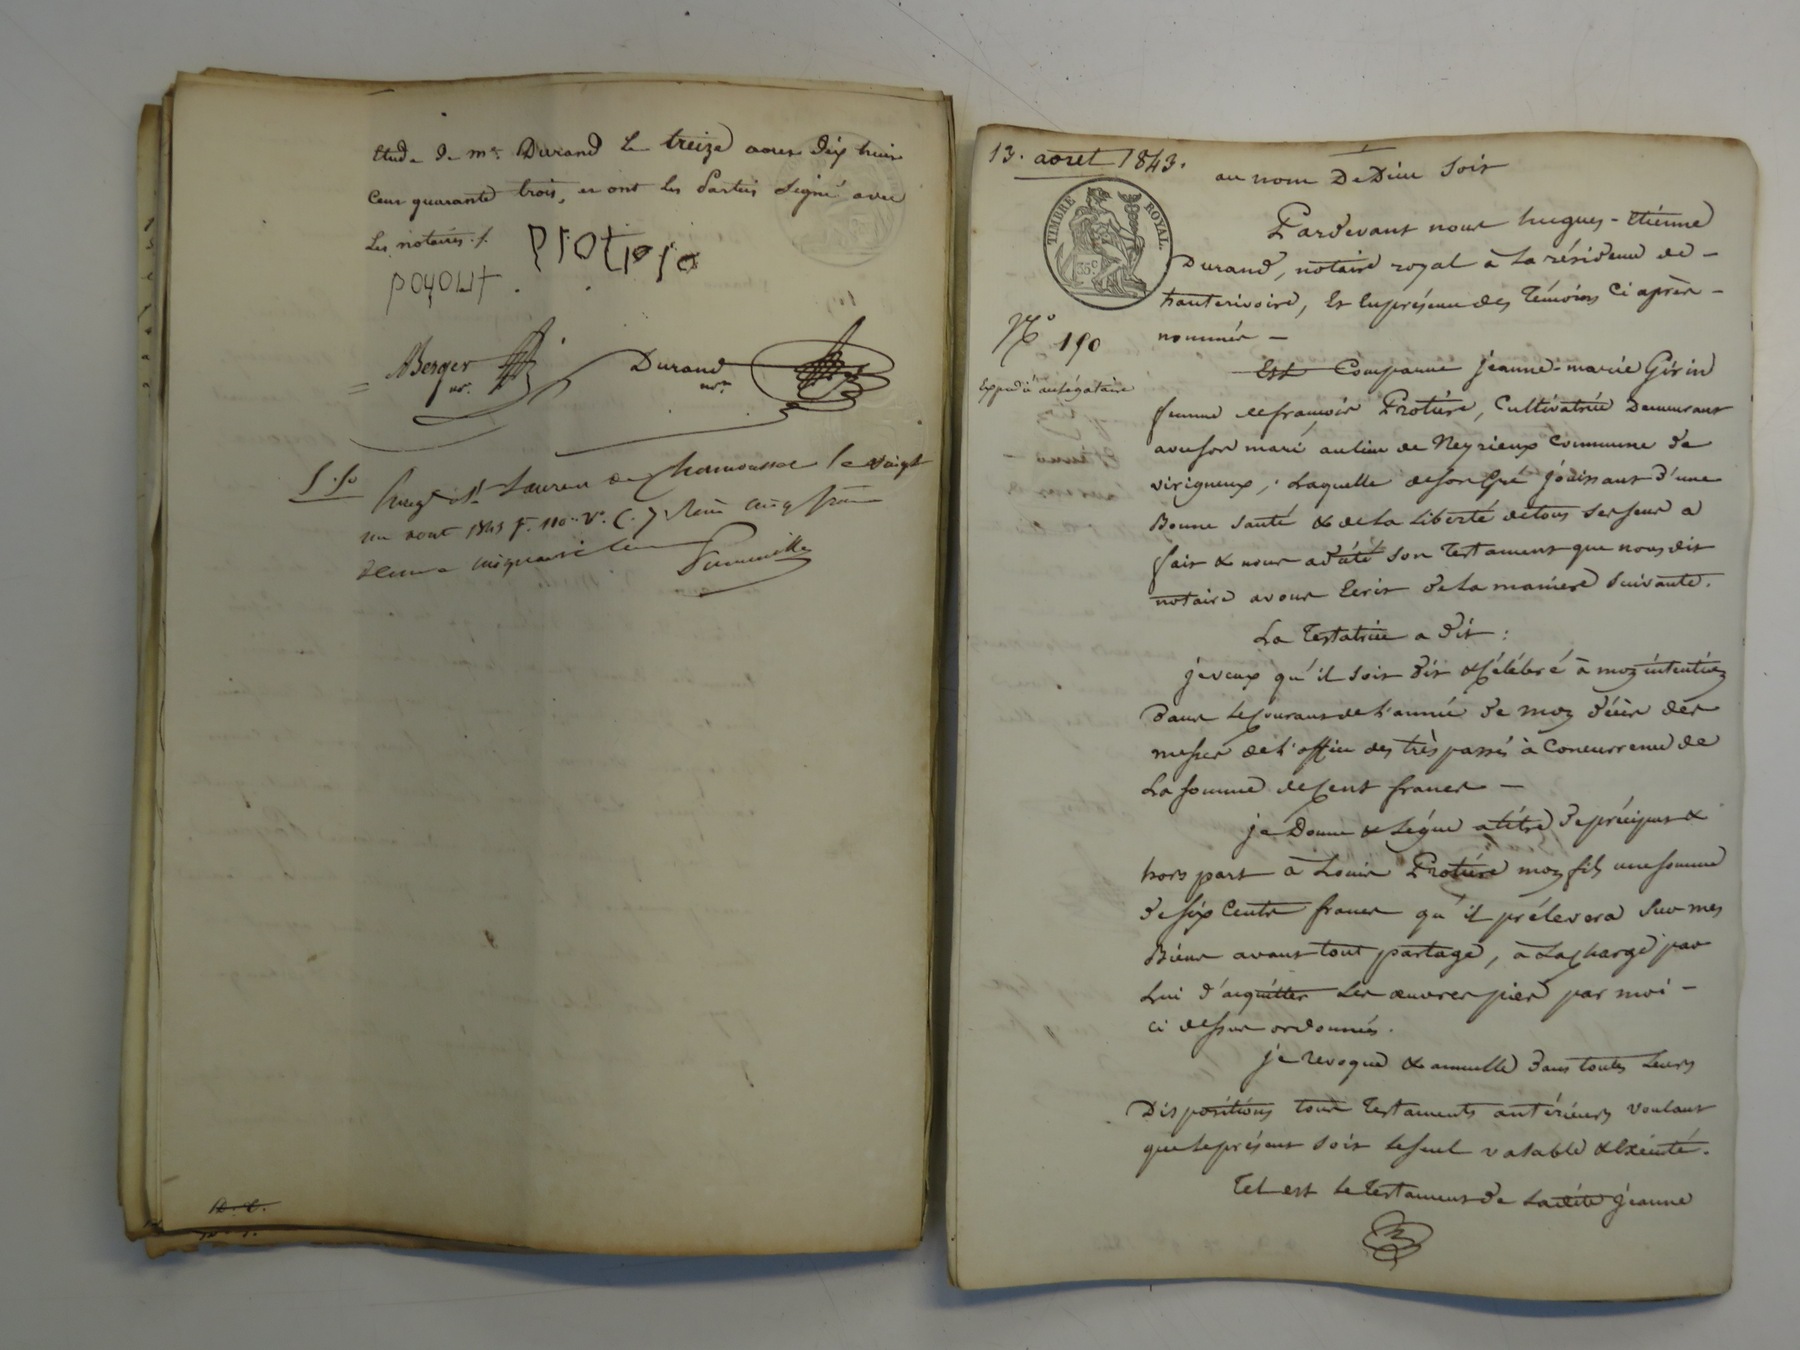 Etude de me. Durand le treize aout dix huit
cent quarante trois, et ont les parties signé avec
Les notaires ./.
protiere
poyout.
Berger
nre.
Durand
nre.
5.50
Enregé à St Laurent de Chamousset le vingt
un aout 1843 f. 110. Vo. C. 7. Reçu cinq francs
decime cinquante cen
D. C.
13. aout 1843.
au nom De Dieu soit
TIMBRE ROYAL
35c
Pardevant nous hugues-Etiénne
Durand, notaire royal à La résidence de -
hauterivoire, Et En présence des Témoins Ci après -
nommés -
No 190
Expedié au légataire
Est Comparue jeanne-marie Girin
femme de françois Protière, Cultivatrice Demeurant
avec son mari au lieu de Neyrieux Commune de
virigneux, Laquelle de son Gré jouissant d'une
Bonne santé & de La Liberté de tous ses sens a
fait & nous a dicté son Testament que nous dit
notaire avons Ecrit de La maniere suivante.
La Testatrice a dit :
je veux qu'il soit dit & Célébré à mon intention
dans Le Courant de L'année de mon décès des
messes de L'office des très passés à Concurrence de
La somme de Cent francs -
je Donne & Légue a titre de préciput &
hors part à Louis Protière mon fils une somme
de six Cents francs qu'il prélevera sur mes
Biens avant tout partage, à La Charge par
Lui d'acquitter Les œuvres pies par moi -
ci dessus ordonnées.
je revoque & annulle dans toutes Leurs
Dispositions tous Testaments antérieurs voulant
que Le présent soit Le seul valable & Exécuté.
Tel est Le Testament de La dite jeanne